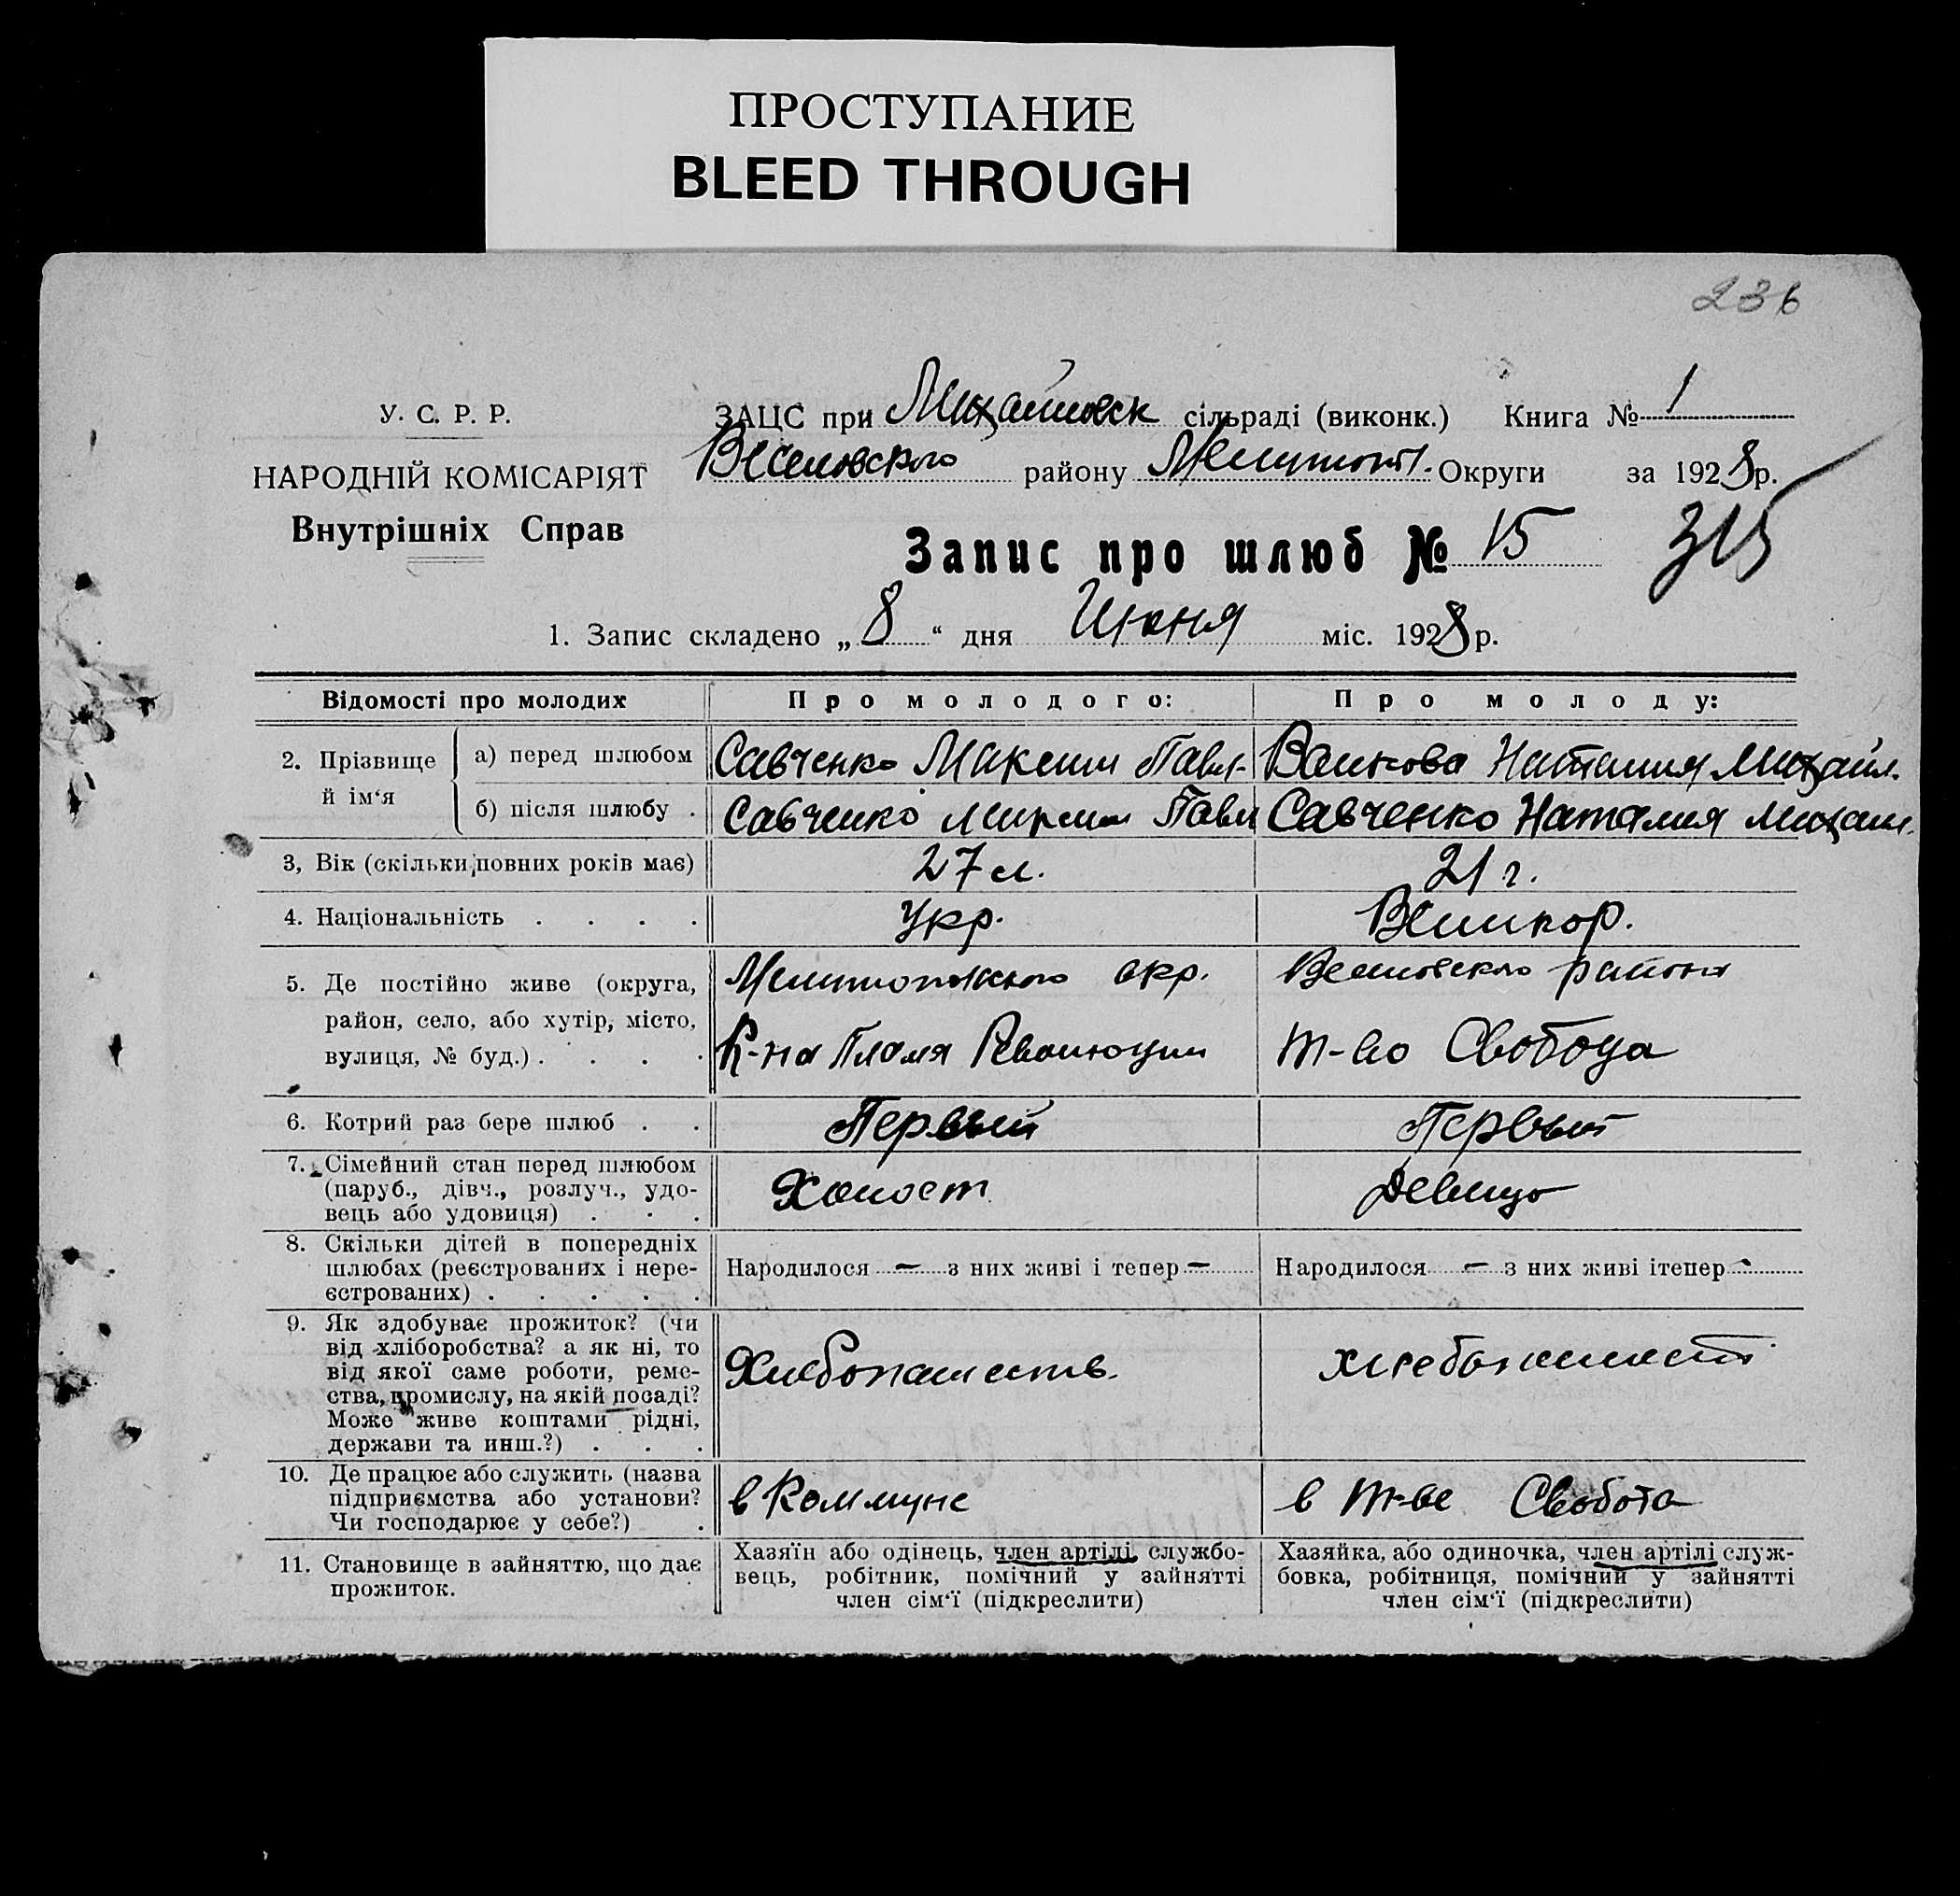 ПРОСТУПАНИЕ
BLEED THROUGH
236
У. С. Р. Р.
ЗАЦС при Михайловск сільраді (виконк.) Книга № 1
НАРОДНІЙ КОМІСАРІЯТ
Веселовского району Мелитоп. Округи за 1928 р.
Внутрішніх Справ
Запис про шлюб № 15
315
1. Запис складено „ 8 “ дня Июня міс. 1928 р.
Відомості про молодих
Про молодого:
Про молоду:
2. Прізвище й ім‘я
а) перед шлюбом
Савченко Максим Павл.
Волкова Наталия Михайл.
б) після шлюбу .
Савченко Павл
Савченко Наталия Михаил.
3, Вік (скільки повних років має)
27 л.
21 г.
4. Національність . . . .
Укр.
Великор.
5. Де постійно живе (округа,
район, село, або хутір, місто,
вулиця, № буд.) . . . .
Мелитопольского окр.
К-на Пламя Революции
Веселовского района
т-во Свобода
6. Котрий раз бере шлюб . .
Первый
Первый
7. Сімейний стан перед шлюбом
(паруб., дівч., розлуч., удо-
вець або удовиця) . . .
Холост
Девица
8. Скільки дітей в попередніх
шлюбах (реєстрованих і нере-
єстрованих) . . . . .
Народилося — з них живі і тепер —
Народилося — з них живі ітепер -
9. Як здобуває прожиток? (чи
від хліборобства? а як ні, то
від якої саме роботи, реме-
ства, промислу, на якій посаді?
Може живе коштами рідні,
держави та инш.?) . . .
Хлебопашеств.
хлебопашест
10. Де працює або служить (назва
підприємства або установи?
Чи господарює у себе?) .
в Коммуне
в Т-ве Свобота
11. Становище в зайняттю, що дає
прожиток.
Хазяїн або одінець, член артілі, службо-
вець, робітник, помічний у зайнятті
член сім‘ї (підкреслити)
Хазяйка, або одиночка, член артілі служ-
бовка, робітниця, помічний у зайнятті
член сім‘ї (підкреслити)